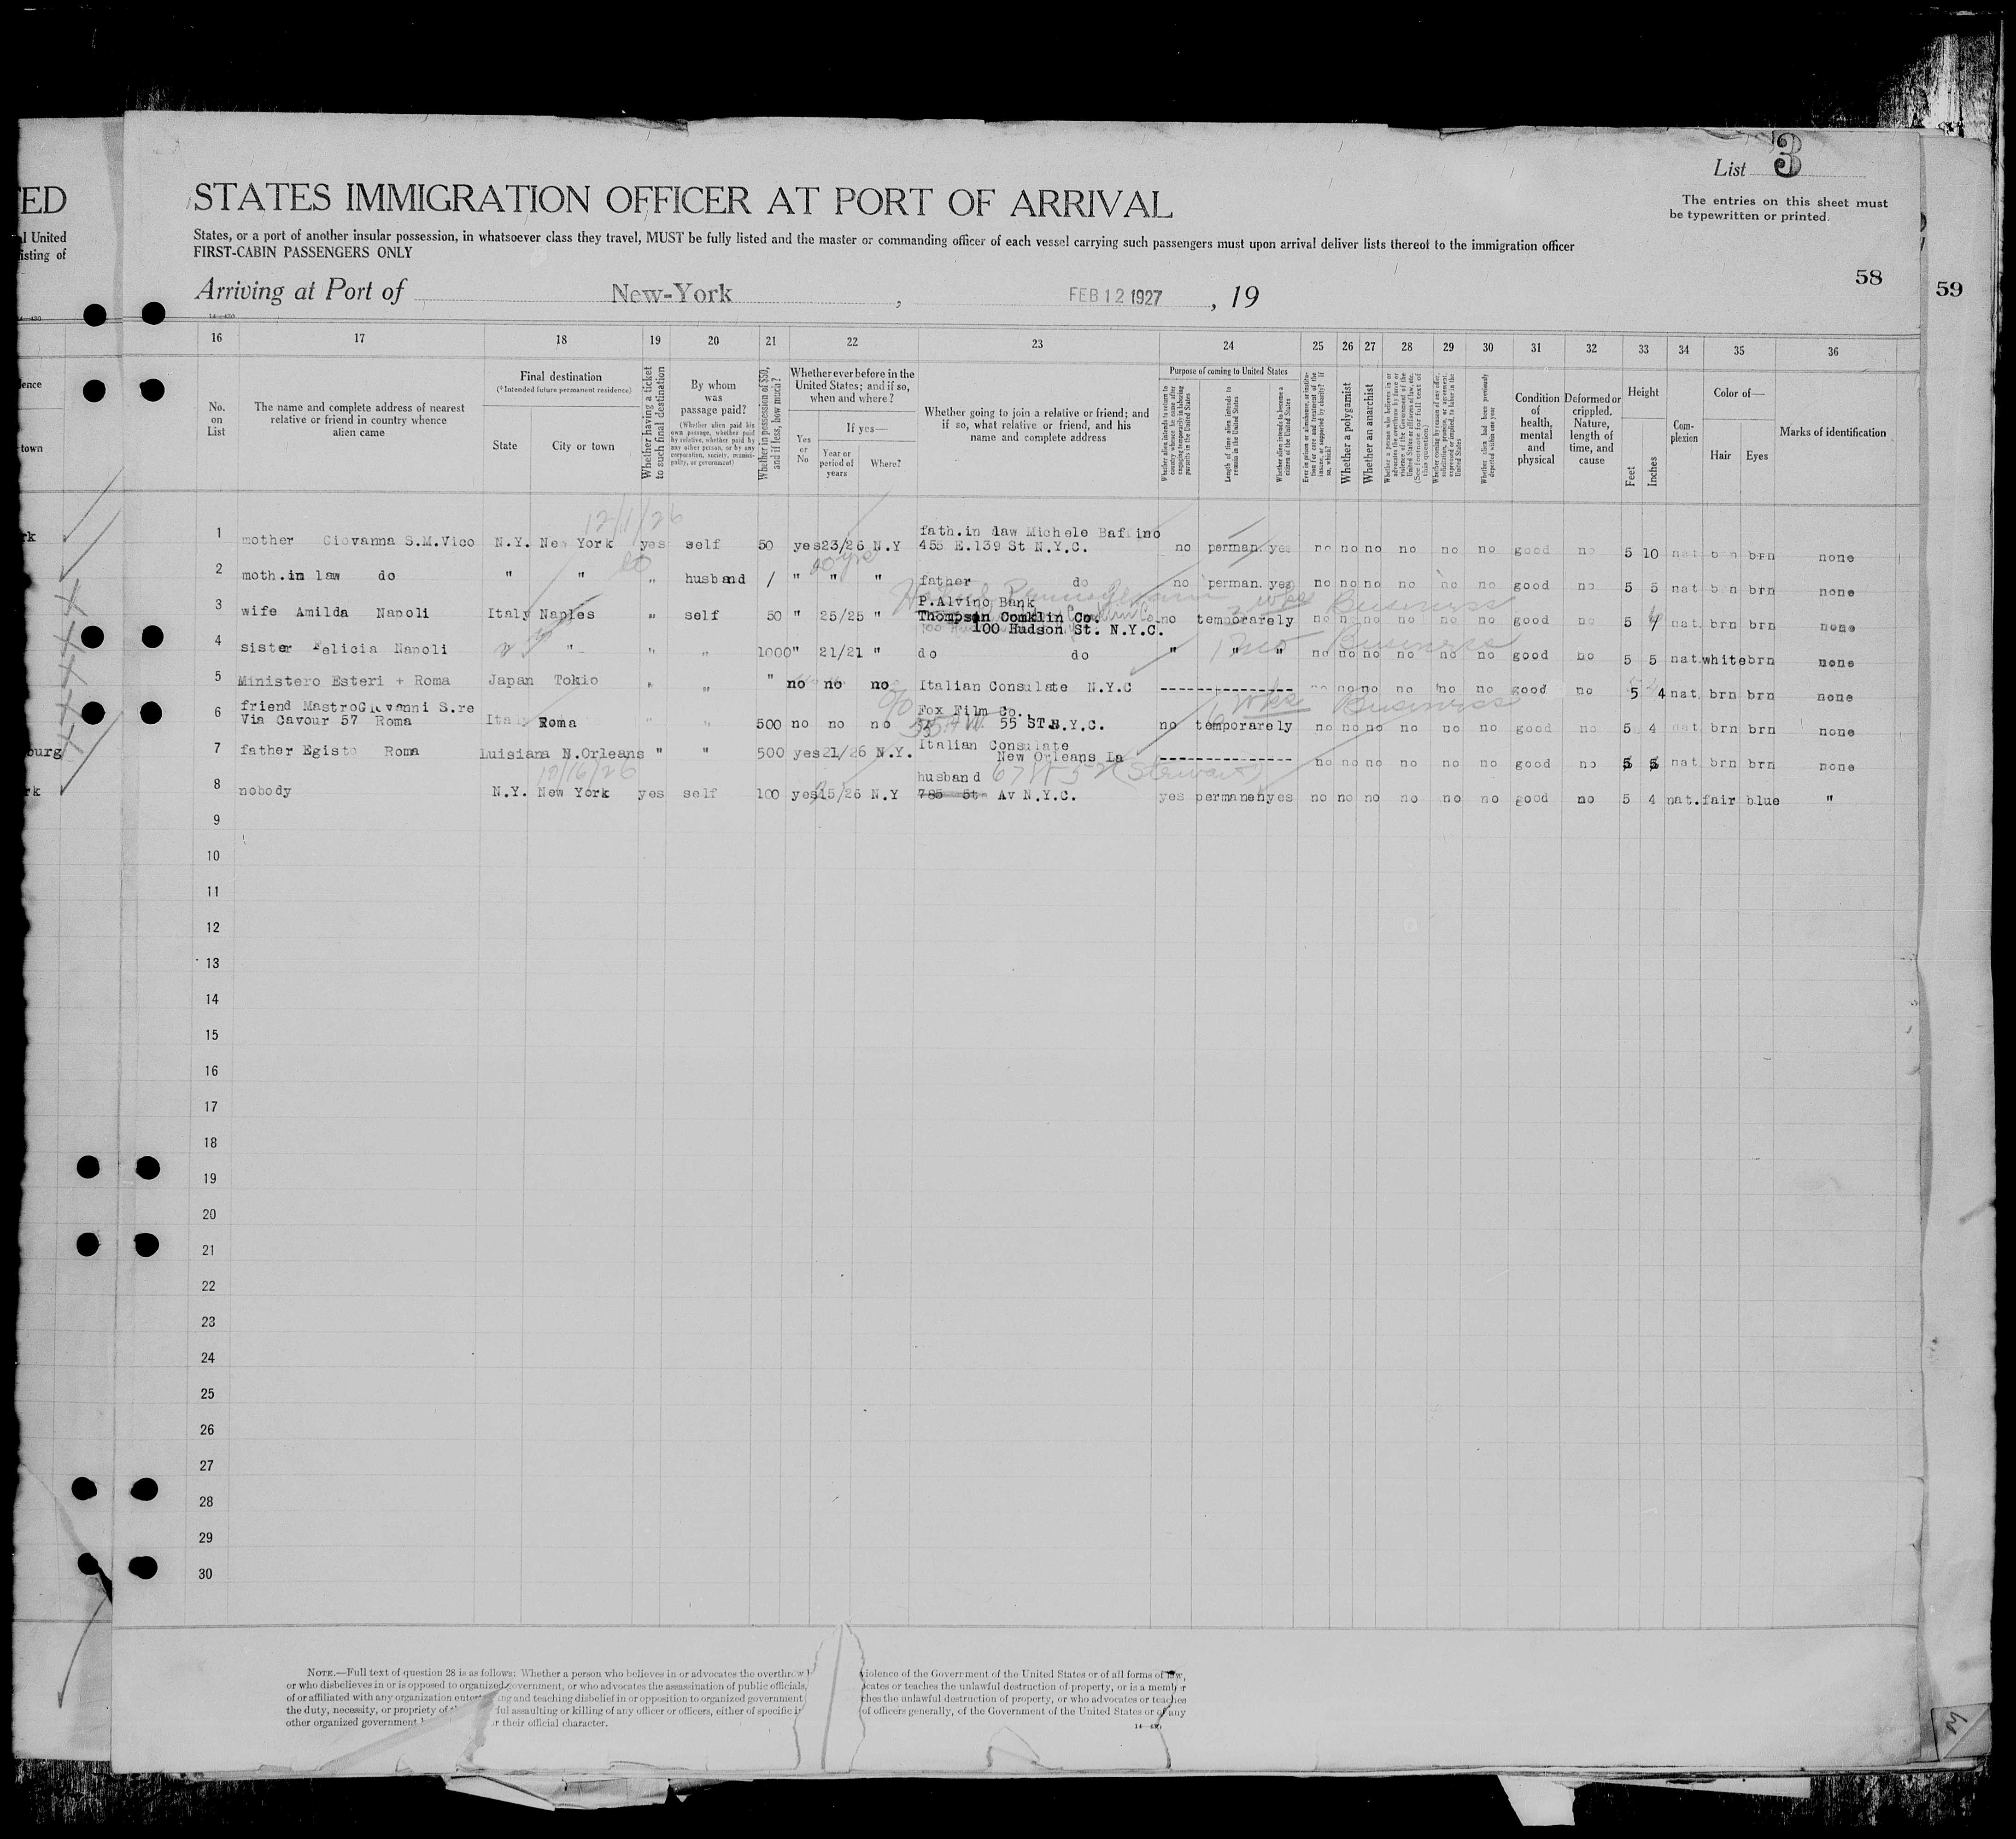 ED
l United
isting of
List 3
STATES IMMIGRATION OFFICER AT PORT OF ARRIVAL
The entries on this sheet must
be typewritten or printed.
States, or a port of another insular possession, in whatsoever class they travel, MUST be fully listed and the master or commanding officer of each vessel carrying such passengers must upon arrival deliver lists thereof to the immigration officer
FIRST-CABIN PASSENGERS ONLY
58
59
Arriving at Port of New-York, FEB 12 1927, 19
14—430
16 17 18 19 20 21 22 23 24 25 26 27 28 29 30 31 32 33 34 35 36
No. on List
The name and complete address of nearest
relative or friend in country whence
alien came
Final destination
(*Intended future permanent residence)
State
City or town
Whether having a ticket
to such final destination
By whom
was
passage paid?
(Whether alien paid his
own passage, whether paid
by relative, whether paid by
any other person, or by any
corporation, society, munici-
pality, or government)
Whether in possession of $50,
and if less, how much?
Whether ever before in the
United States; and if so,
when and where?
Yes
or
No
If yes—
Year or
period of
years
Where?
Whether going to join a relative or friend; and
if so, what relative or friend, and his
name and complete address
Purpose of coming to United States
Whether alien intends to return to
country whence he came after
engaging temporarily in laboring
pursuits in the United States
Length of time alien intends to
remain in the United States
Whether alien intends to become a
citizen of the United States
Ever in prison or almshouse, or institu-
tion for care and treatment of the
insane, or supported by charity? If
so, which?
Whether a polygamist
Whether an anarchist
Whether a person who believes in or
advocates the overthrow by force or
violence of the Government of the
United States or all forms of law, etc.
(See footnote for full text of
this question.)
Whether coming by reason of any offer,
solicitation, promise, or agreement,
expressed or implied, to labor in the
United States
Whether alien had been previously
deported within one year
Condition
of
health,
mental
and
physical
Deformed or
crippled.
Nature,
length of
time, and
cause
Height
Feet
Inches
Com-
plexion
Color of—
Hair
Eyes
Marks of identification
12/1/26
fath.in law Michele Baffino
1 mother Giovanna S.M.Vico N.Y. New York yes self 50 yes 23/26 N.Y 455 E.139 St N.Y.C. no perman. yes no no no no no no good no 5 10 nat brn brn none
2 moth.in law do " " " husband / " " " father do no perman. yes no no no no no no good no 5 5 nat brn brn none
P.Alvino Bank
3 wks Business
3 wife Amilda Napoli Italy Naples " self 50 " 25/25 " Thompson Comklin Co. no temporarely no no no no no no good no 5 nat. brn brn none
100 Hudson St. N.Y.C.
Business
4 sister Felicia Napoli " " " 1000 " 21/21 " do do " " " no no no no no no good no 5 5 nat. white brn none
5 Ministero Esteri + Roma Japan Tokio " " " no no no Italian Consulate N.Y.C ---------------- no no no no no no good no 5 4 nat. brn brn none
6 wks Business
friend MastroGiovanni S.re
Fox Film Co.
6 Via Cavour 57 Roma Italy Roma " " 500 no no no 55 ST N.Y.C. no temporarely no no no no no no good no 5 4 nat brn brn none
Italian Consulate
7 father Egisto Roma Luisiana N.Orleans " " 500 yes 21/26 N.Y. New Orleans La ---------------- no no no no no no good no 5 5 nat. brn brn none
husband
8 nobody N.Y. New York yes self 100 yes 15/26 N.Y 785 5th Av N.Y.C. yes permanen yes no no no no no no good no 5 4 nat. fair blue "
9
10
11
12
13
14
15
16
17
18
19
20
21
22
23
24
25
26
27
28
29
30
NOTE.—Full text of question 28 is as follows: Whether a person who believes in or advocates the overthrow violence of the Government of the United States or of all forms of law,
or who disbelieves in or is opposed to organized government, or who advocates the assassination of public officials, cates or teaches the unlawful destruction of property, or is a member
of or affiliated with any organization and teaching disbelief in or opposition to organized government ches the unlawful destruction of property, or who advocates or teaches
the duty, necessity, or propriety of ful assaulting or killing of any officer or officers, either of specific of officers generally, of the Government of the United States or of any
other organized government or their official character.